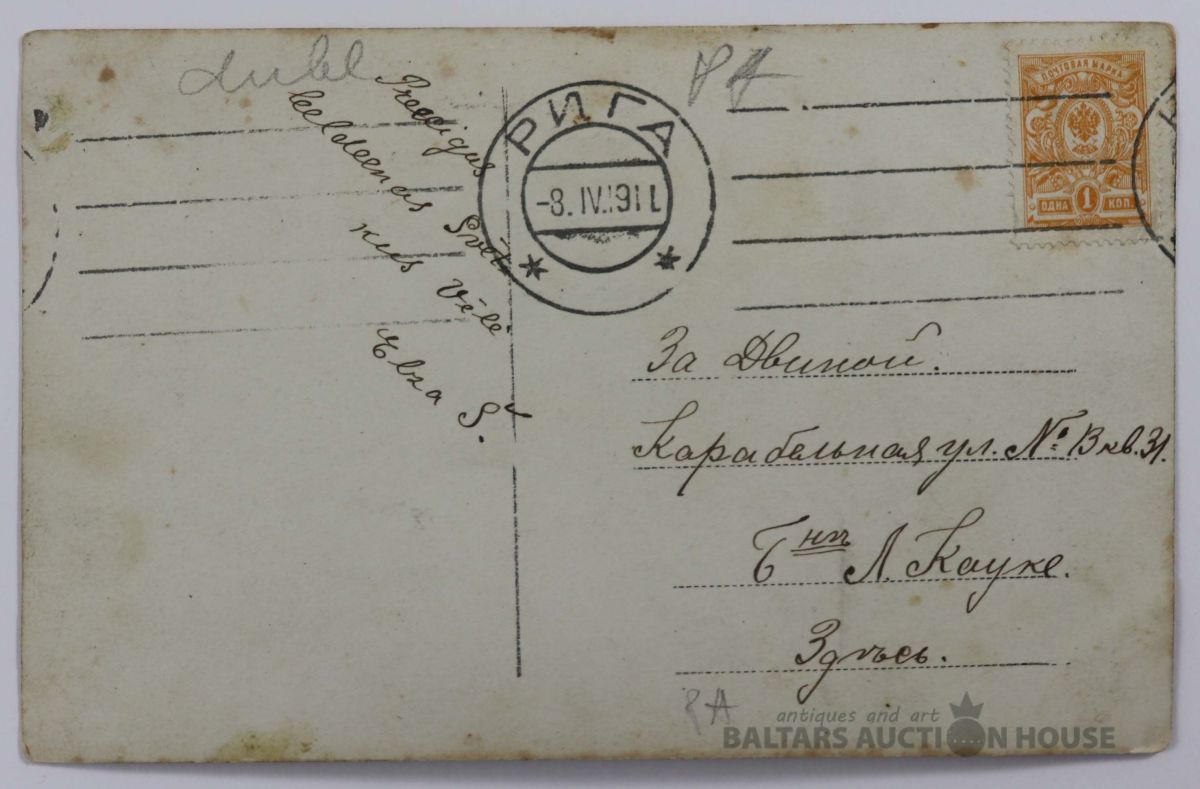 dubl
Preecigus
leeldeenas Svēt
kus vēlē
Elza S.
РИГА
-8.IV.1911
ПОЧТОВАЯ МАРКА
ОДНА 1 КОП.
За Двиной.
Карабельная ул. № 13 кв. 31.
Л. Кауке.
Здѣсь.
antiques and art
BALTARS AUCTION HOUSE